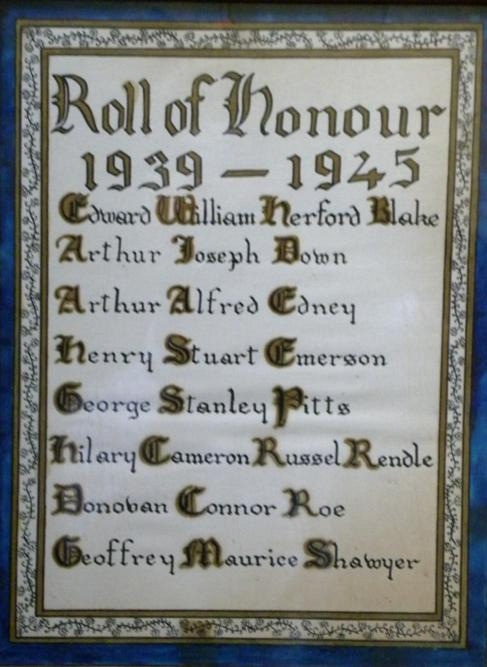 Roll of Honour
1939 — 1945
Edward William Herford Blake
Arthur Joseph Down
Arthur Alfred Edney
Henry Stuart Emerson
George Stanley Pitts
Hilary Cameron Russel Rendle
Donovan Connor Roe
Geoffrey Maurice Shawyer